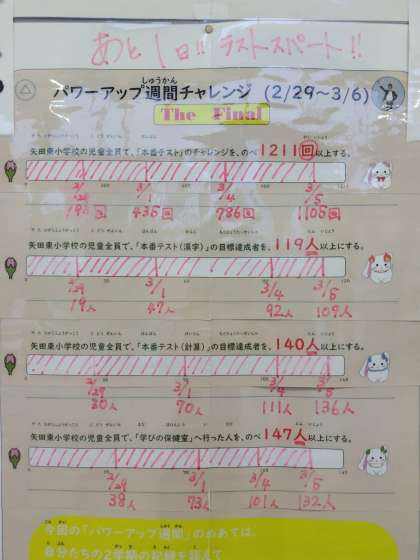 あと1日!! ラストスパート!!
しゅうかん
パワーアップ週間チャレンジ (2/29〜3/6)
The Final
矢田東小学校の児童全員で、「本番テスト」のチャレンジを、のべ1211回以上にする。
2/29 3/1 3/4 3/5
435回 786回 1105回
矢田東小学校の児童全員で、「本番テスト(漢字)」の目標達成者を、119人以上にする。
2/29 3/1 3/4 3/5
19人 47人 92人 109人
矢田東小学校の児童全員で、「本番テスト(計算)」の目標達成者を、140人以上にする。
2/29 3/1 3/4 3/5
30人 70人 111人 136人
矢田東小学校の児童全員で、「学びの保健室」へ行った人を、のべ147人以上にする。
2/29 3/1 3/4 3/5
38人 73人 101人 132人
今回の「パワーアップ週間」のめあては、
自分たちの2学期の記録を超えて